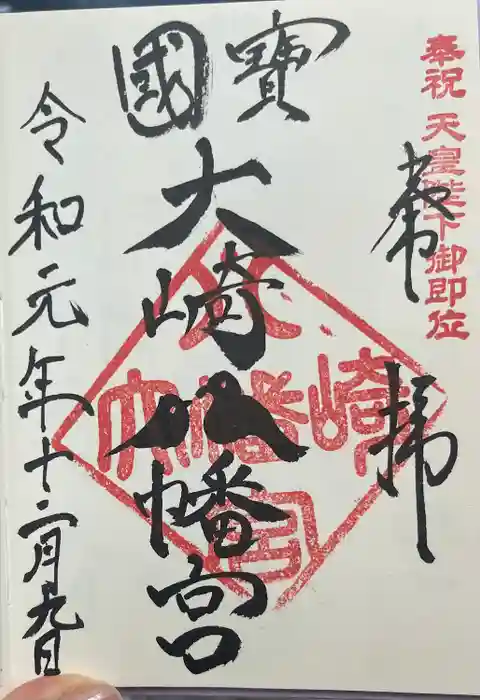 奉祝 天皇陛下御即位
奉拝
寶
國
大崎八幡宮
大崎八幡宮
令和元年十二月九日